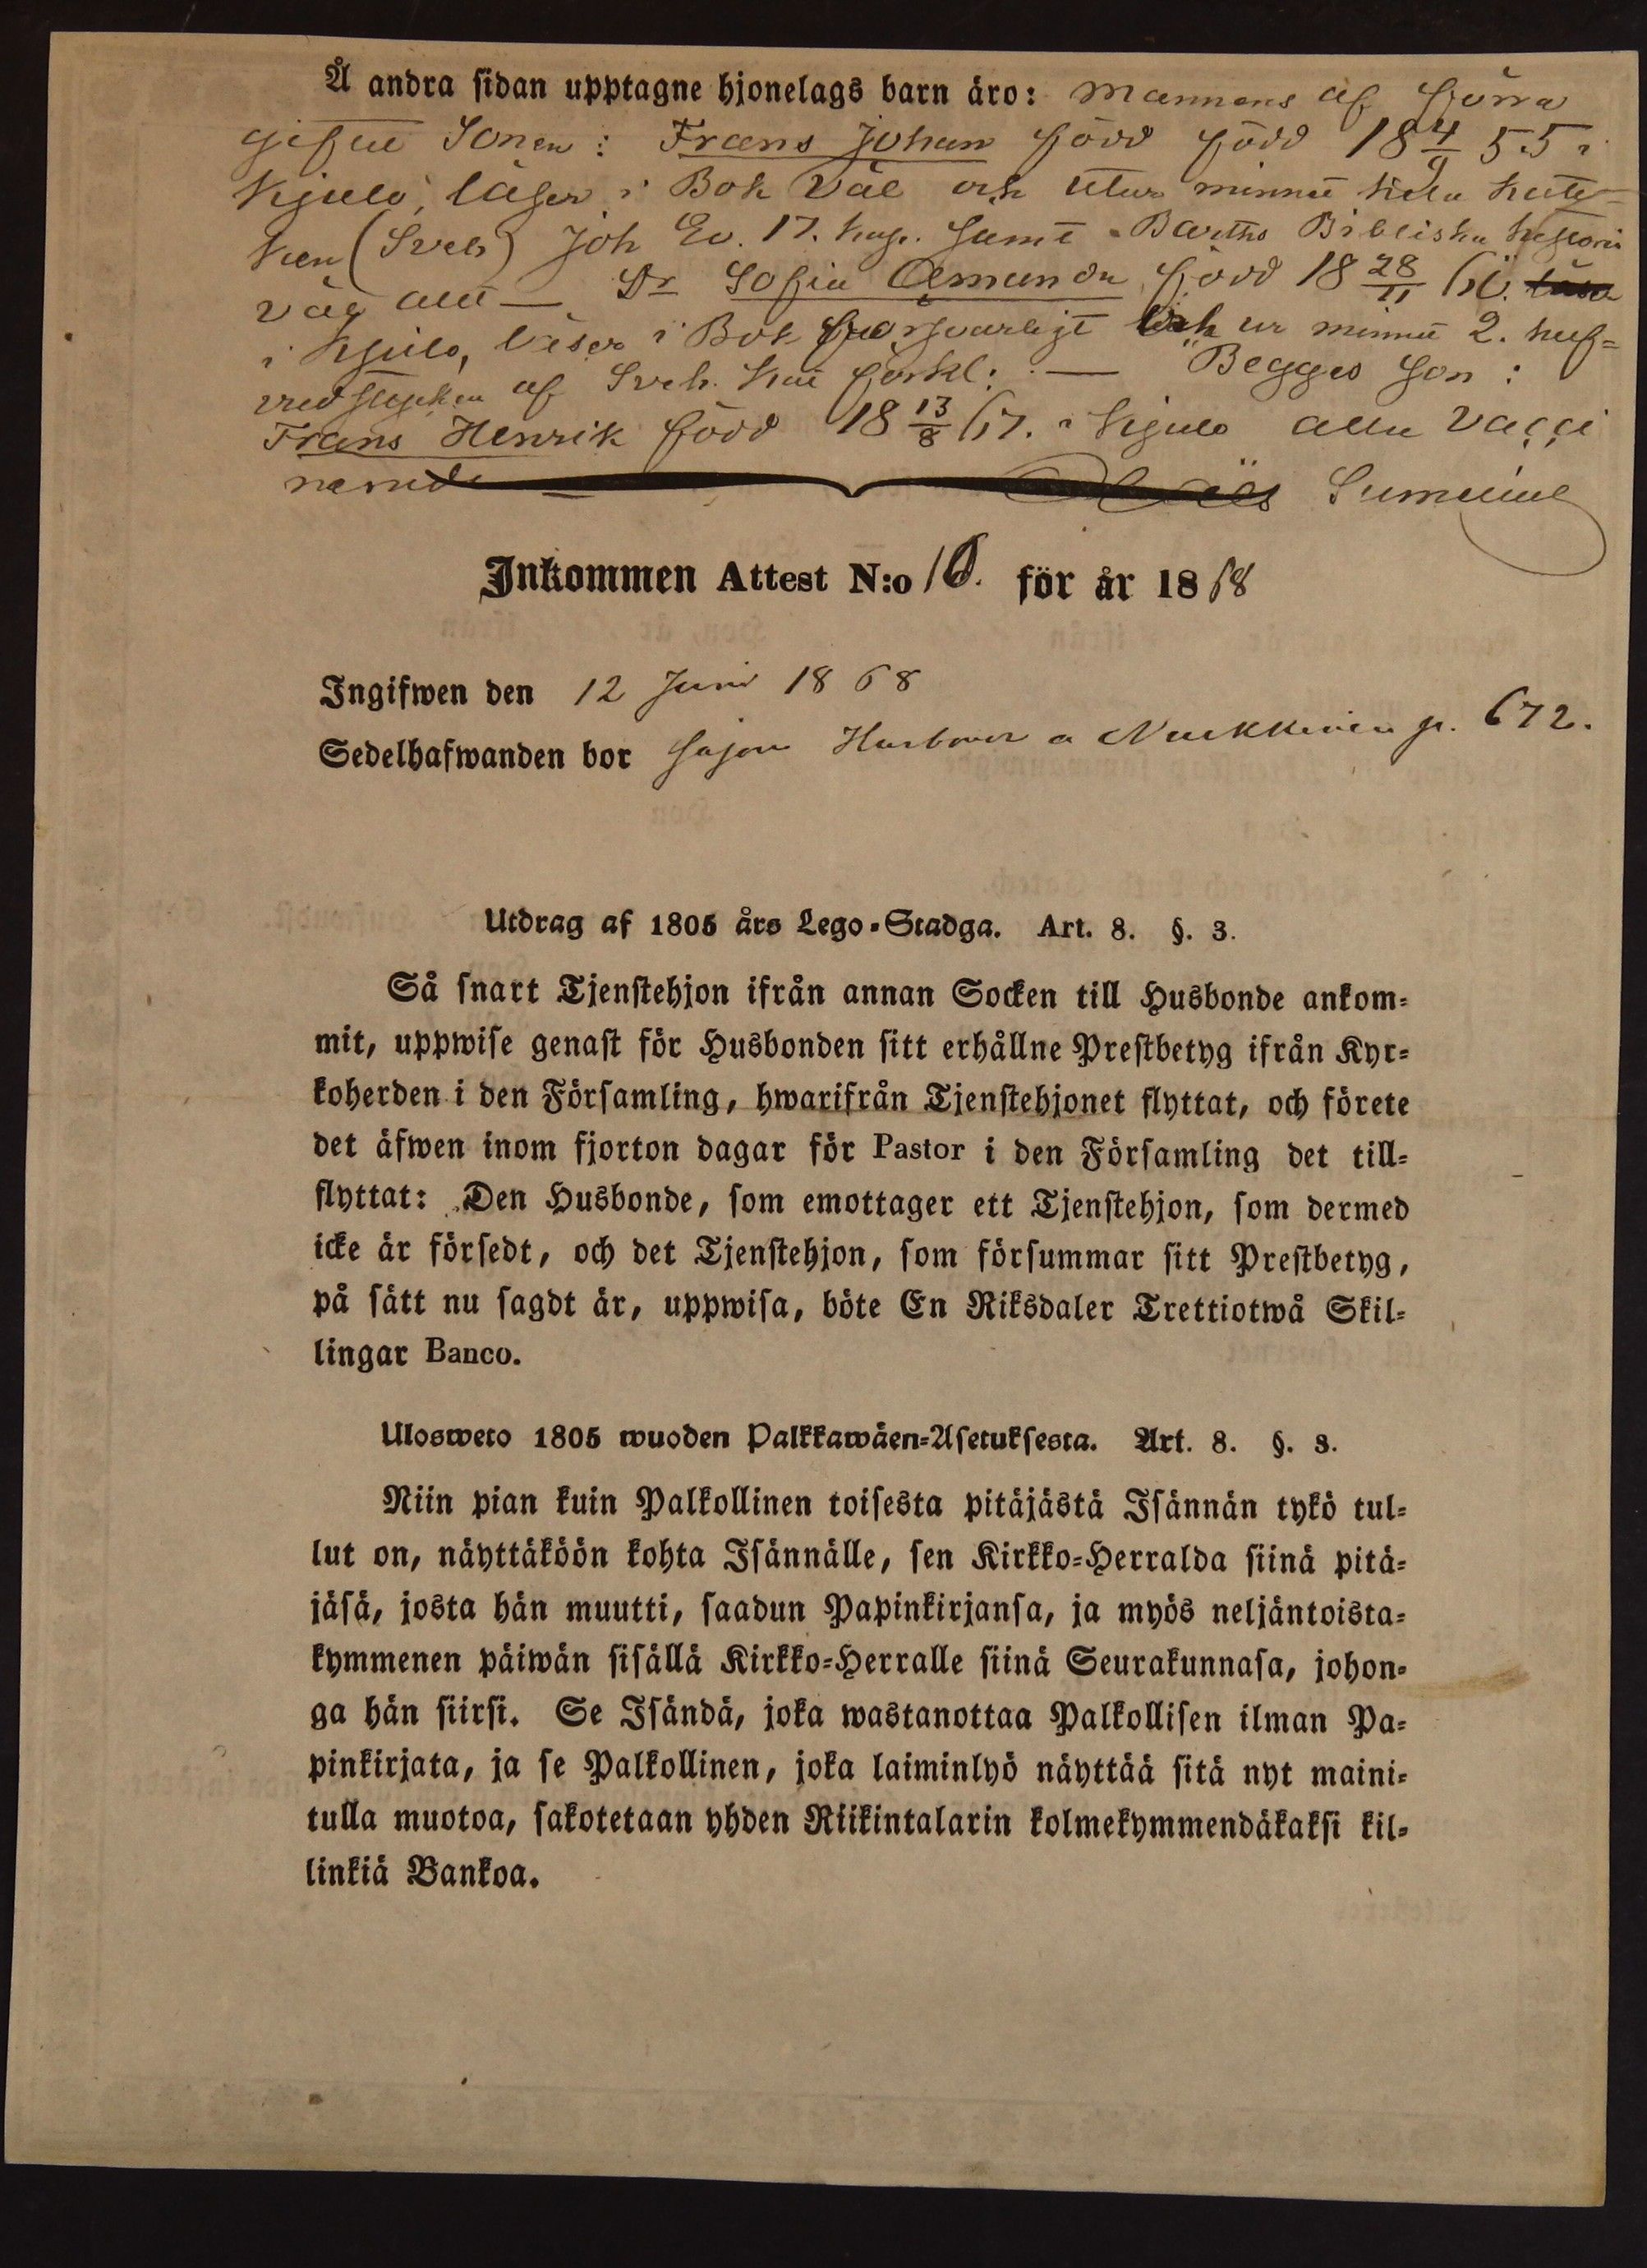 Å andra sidan upptagne hjonelags barn äro: Mannens af förra
giftet Sonen: Frans Johan född född 18 4/9 55 i
Kjulo, läser i Bok väl och utur minnet hela Kate-
ken (Sveb) Joh Ev. 17. kap. samt Barths Bibliska historia
väg allt — Dr Sofia Amanda, född 18 28/11 60. läser
i Kjulo, läser i Bok försvarligt och ur minnet 2. huf-
vudstycken af Sveb. Kat förkl: — Begges Son:
Frans Henrik född 18 13/8 67. i Kjulo alla vacci
nerade
Inkommen Attest N:o 10. för år 1868
Ingifwen den 12 Juni 1868
Sedelhafwanden bor p. 672.
Utdrag af 1805 års Lego-Stadga. Art. 8. §. 3.
Så snart Tjenstehjon ifrån annan Socken till Husbonde ankom-
mit, uppwise genast för Husbonden sitt erhållne Prestbetyg ifrån Kyr-
koherden i den Församling, hwarifrån Tjenstehjonet flyttat, och förete
det äfwen inom fjorton dagar för Pastor i den Församling det till-
flyttat: Den Husbonde, som emottager ett Tjenstehjon, som dermed
icke är försedt, och det Tjenstehjon, som försummar sitt Prestbetyg,
på sätt nu sagdt är, uppwisa, böte En Riksdaler Trettiotwå Skil-
lingar Banco.
Ulosweto 1805 wuoden Palkkawäen-Asetuksesta. Art. 8. §. 3.
Niin pian kuin Palkollinen toisesta pitäjästä Isännän tykö tul-
lut on, näyttäköön kohta Isännälle, sen Kirkko-Herralda siinä pitä-
jäsä, josta hän muutti, saadun Papinkirjansa, ja myös neljäntoista-
kymmenen päiwän sisällä Kirkko-Herralle siinä Seurakunnasa, johon-
ga hän siirsi. Se Isändä, joka wastanottaa Palkollisen ilman Pa-
pinkirjata, ja se Palkollinen, joka laiminlyö näyttää sitä nyt maini-
tulla muotoa, sakotetaan yhden Riikintalarin kolmekymmendäkaksi kil-
linkiä Bankoa.